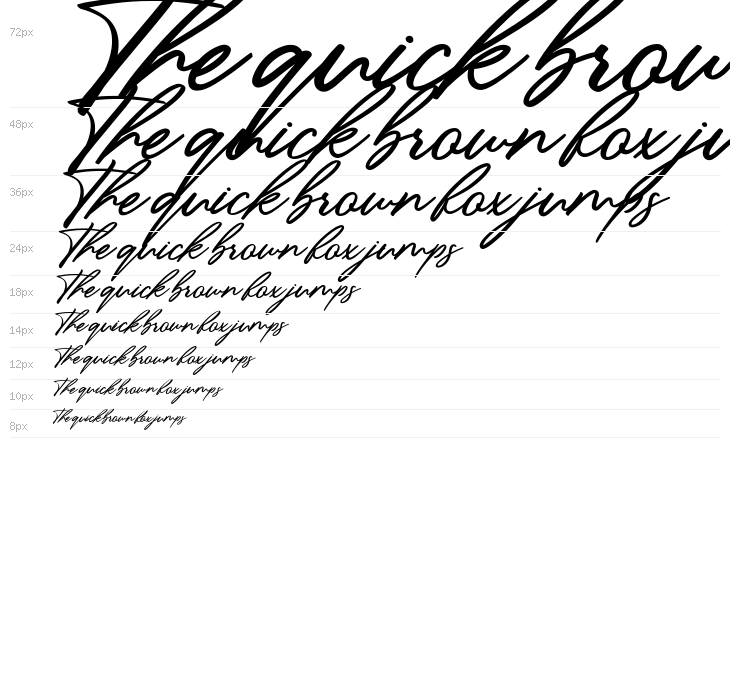 72px The quick brow
48px The quick brown fox ju
36px The quick brown fox jumps
24px The quick brown fox jumps
18px The quick brown fox jumps
14px The quick brown fox jumps
12px The quick brown fox jumps
10px The quick brown fox jumps
8px The quick brown fox jumps